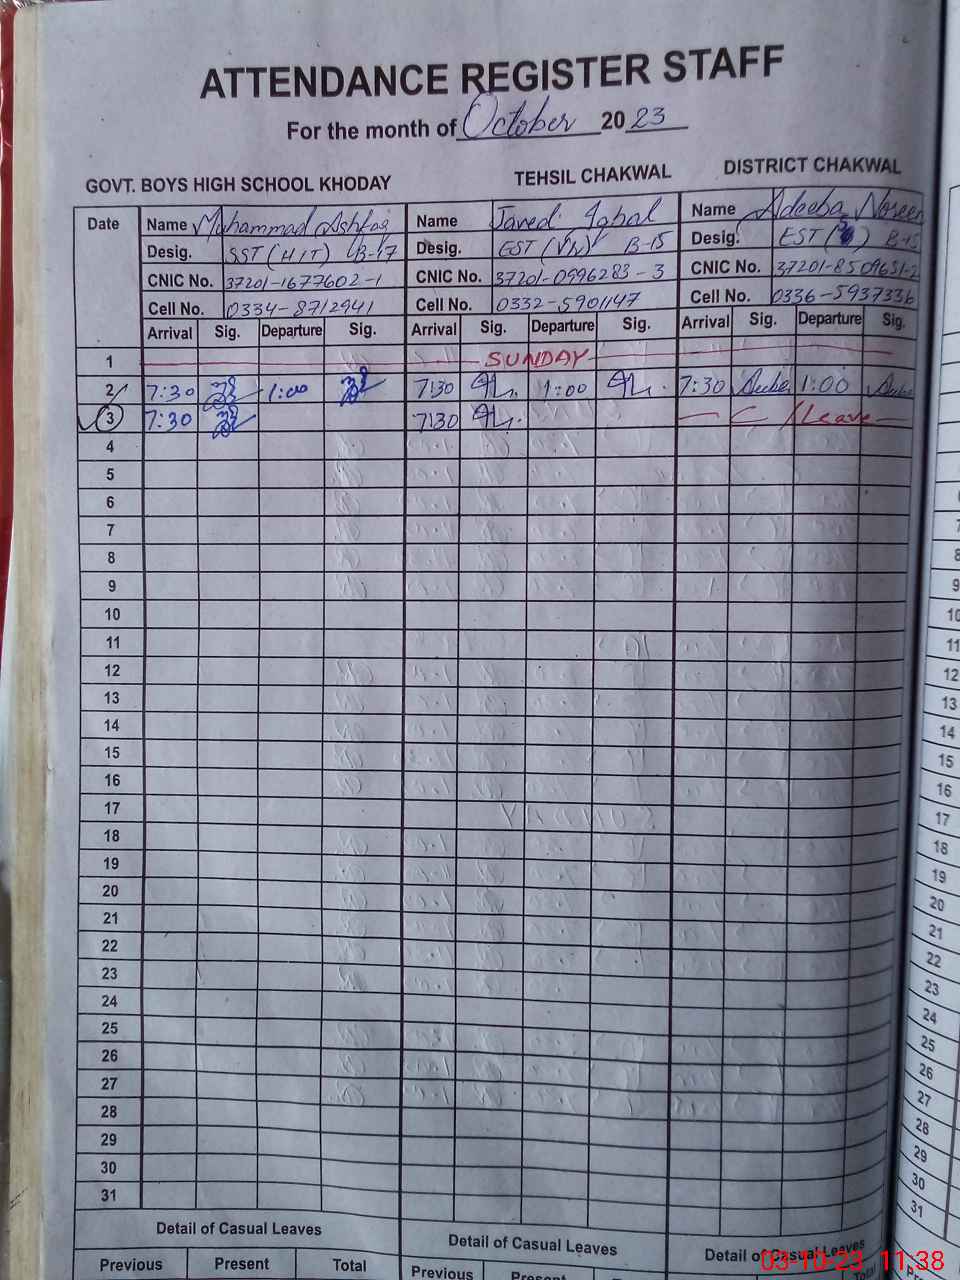 ATTENDANCE REGISTER STAFF
For the month of October 2023
GOVT. BOYS HIGH SCHOOL KHODAY TEHSIL CHAKWAL DISTRICT CHAKWAL
Date Name Muhammad Ashfaq Name Javed Iqbal Name Adeeba Noreen
Desig. SST (H/T) B-17 Desig. EST (VN) B-15 Desig. EST ( ) B-15
CNIC No. 37201-1677602-1 CNIC No. 37201-0996283-3 CNIC No. 37201-8509651-2
Cell No. 0334-8712941 Cell No. 0332-5901147 Cell No. 0336-5937336
Arrival Sig. Departure Sig. Arrival Sig. Departure Sig. Arrival Sig. Departure Sig.
1 SUNDAY
2 7:30 1:00 7:30 1:00 7:30 1:00
3 7:30 7:30 C/Leave
4
5
6
7
8 8
9 9
10 10
11 11
12 12
13 13
14 14
15 15
16 16
17 17
18 18
19 19
20 20
21 21
22 22
23 23
24 24
25 25
26 26
27 27
28 28
29 29
30 30
31 31
Detail of Casual Leaves Detail of Casual Leaves Detail of Casual Leaves
Previous Present Total Previous Present Total
03-10-23 11:38